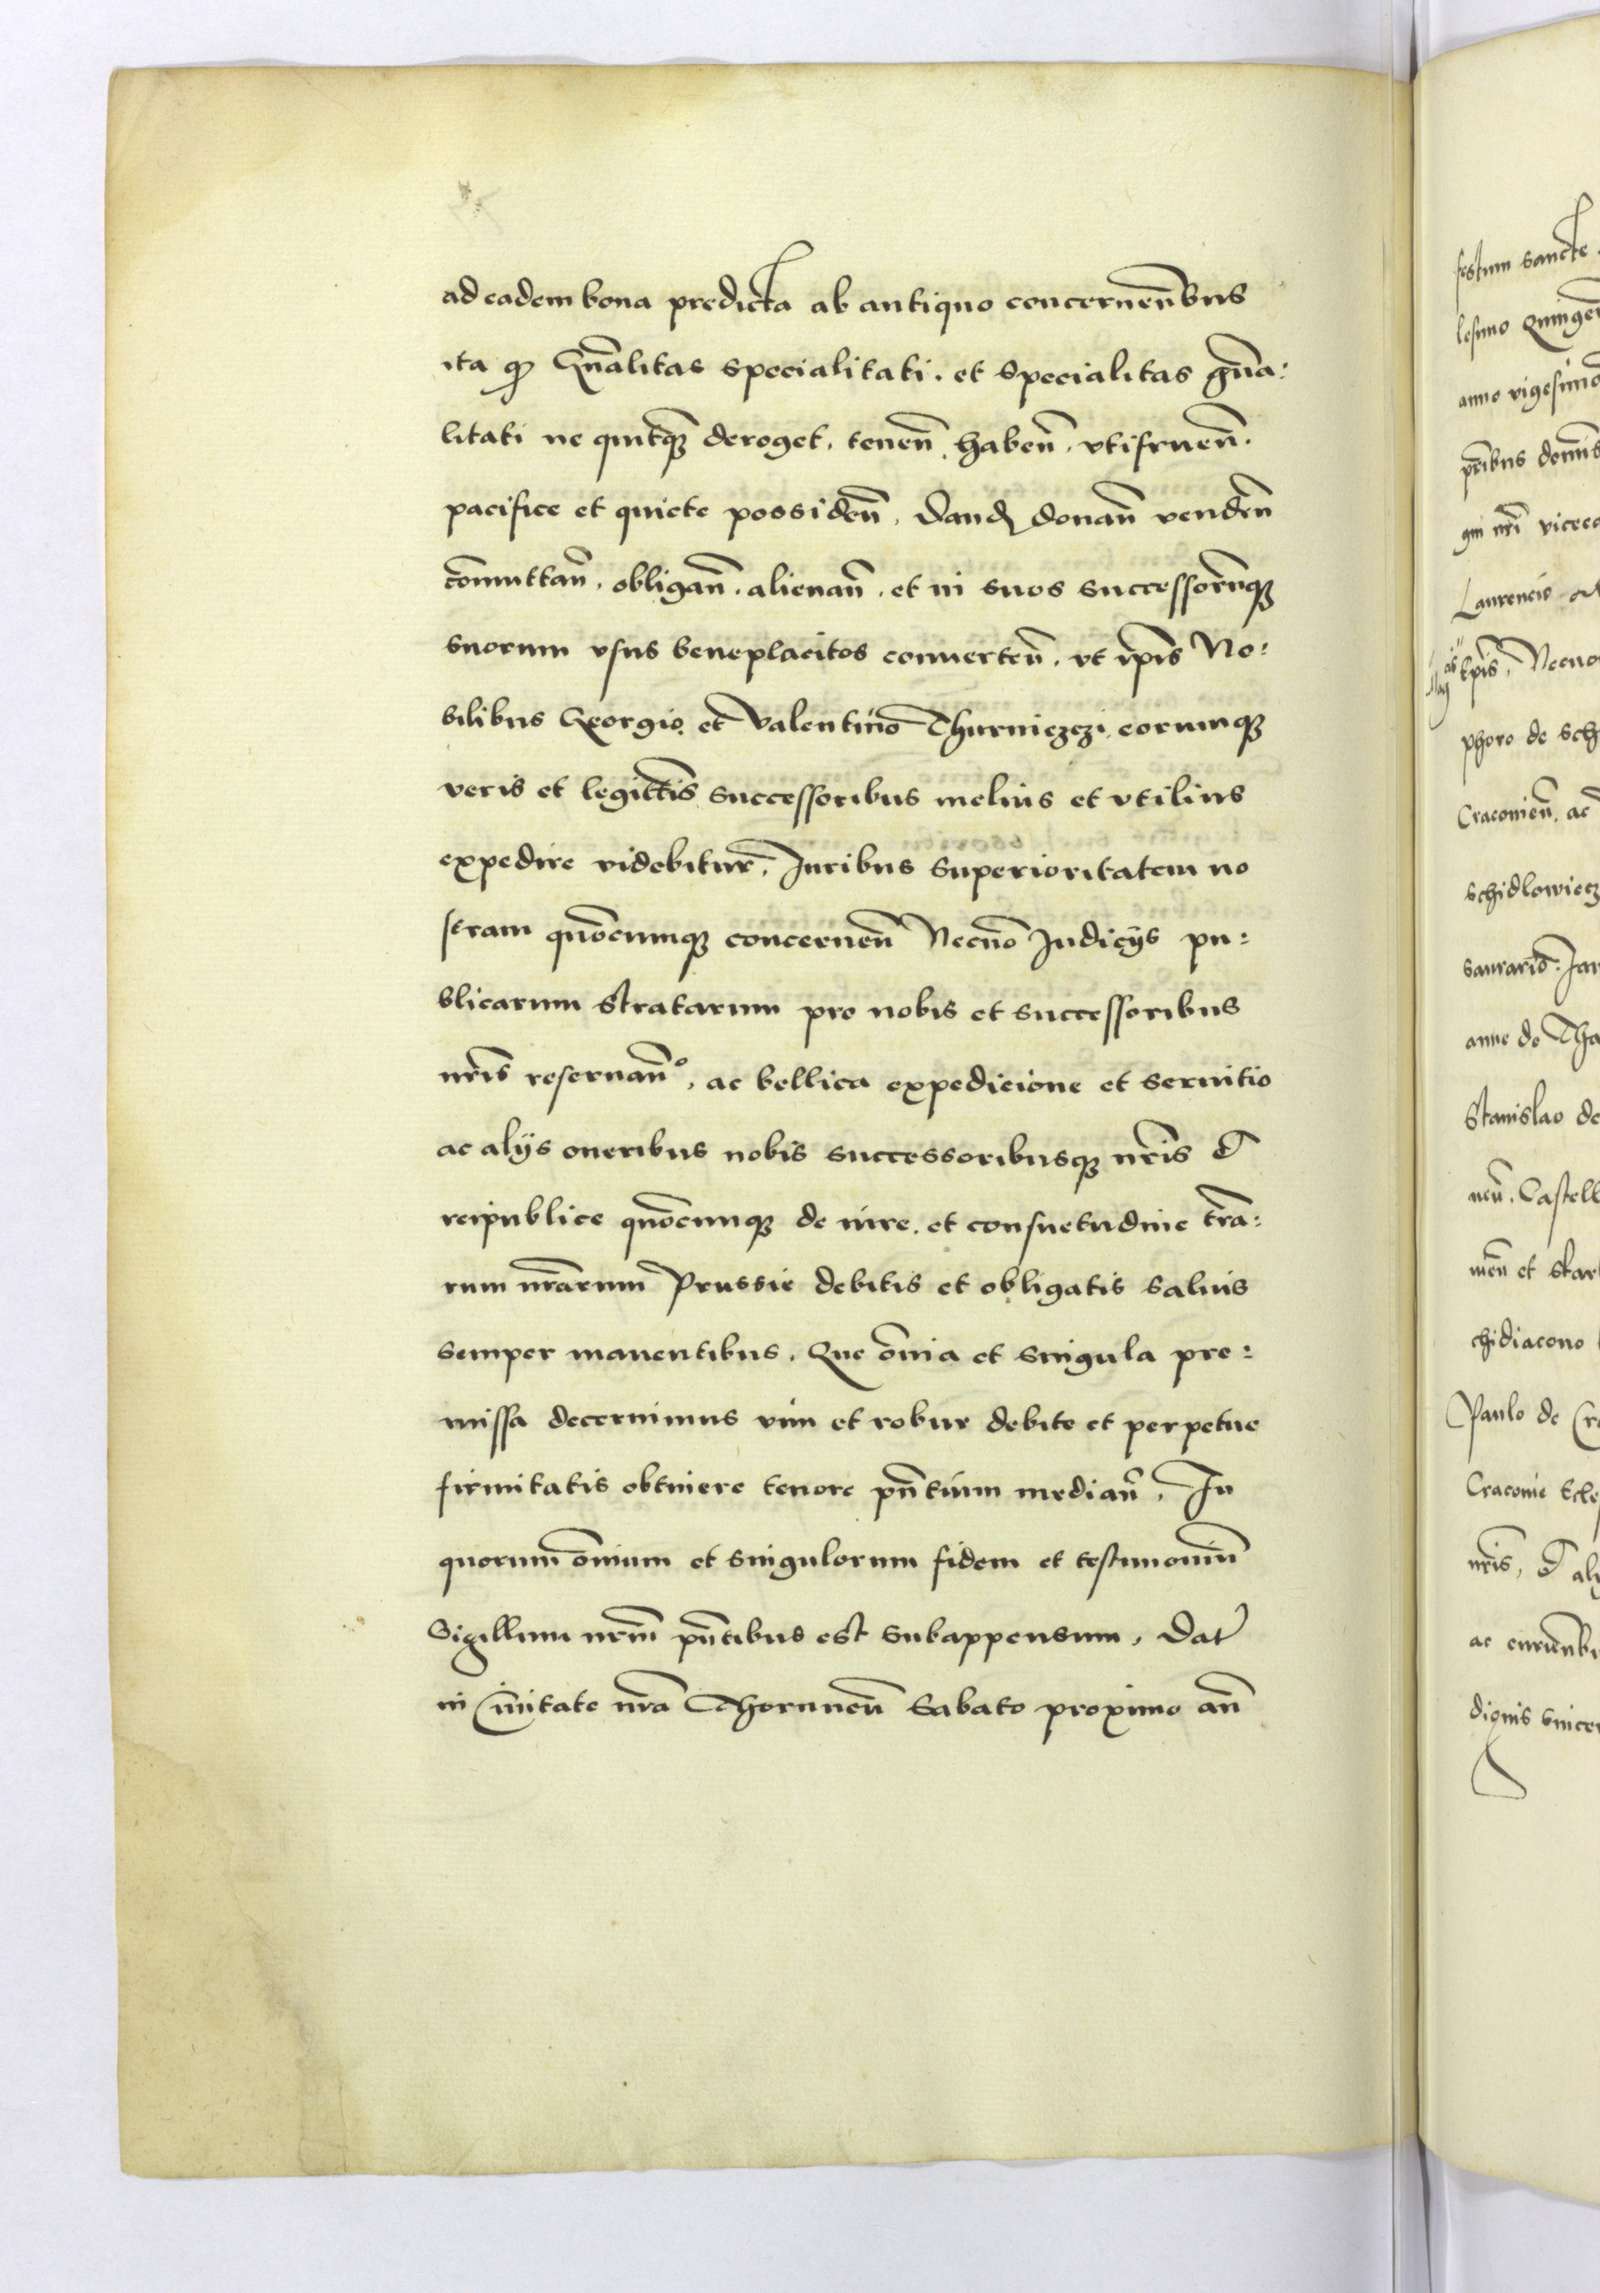 ad eadem bona predicta ab antiquo concernen̄bus
ita qȝ Gn̄alitas specialitati . et Specialitas gn̄a:
litati ne quitqȝ deroget . tenen̄ . haben̄ . vtifruen̄ .
pacifice et quiete possiden̄ . Dandꝭ donan̄ venden̄
co̅muttan̄ . obligan̄ . alienan̄ . et in suos successoru̅qȝ
suorum vsus beneplacitos conuerten̄ . vt ip̄is No:
bilibus Georgio et Valentino Thurniezezi eorumqȝ
veris et legitti̅s successoribus melius et vtilius
expedire videbitur . Juribus superioritatem no
stram quo̅cumqȝ concernen̄ Necno̅ Judicÿs pu:
blicarum stratarum pro nobis et successoribus
nr̄is reseruan̄ . ac bellica expedicione et seruitio
ac alÿs oneribus nobis successoribusqȝ nr̄is et
reipublice quo̅cunqȝ de iure . et consuetudine tr̄a:
rum nr̄arum Prussie debitis et obligatis saluis
semper manentibus . Que o̅nia et singula pre:
missa decernimus vim et robur debite et perpetue
firmitatis obtinere tenore pn̄tium median̄ . In
quorum o̅nium et singulorum fidem et testimoniu̅
Sigillum nr̄m pn̄tibus est subappensum . Dat
in Ciuitate nr̄a Thorunen̄ Sabato proximo an̄
festum sancte
lesimo Quingen
anno vigesimo
pr̄ibus domi̅s
gni nr̄i vicec
Laurencio
ep̄is . Necno
phoro de Sch
Craconien̄ . ac
Schidlowiecz
saurario . Jar
anne de Tha
Stanislao de
nen̄ . Castell
men̄ et star
chidiacono
Paulo de Cr
Craconie Ecle
nr̄is , et al
ac
dignis since